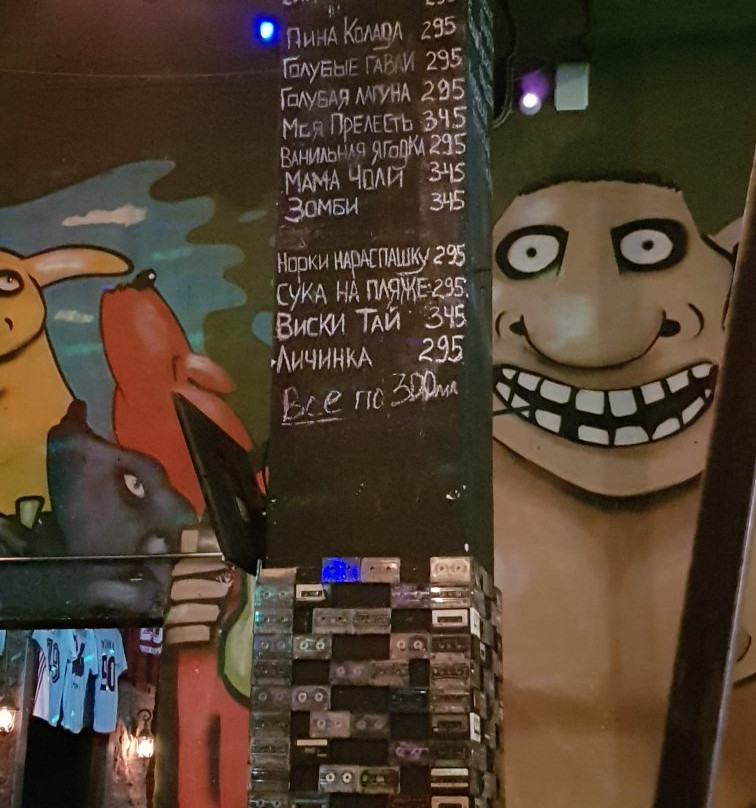 295
Пина Колада 295
Голубые гаваи 295
Голубая лагуна 295
Моя Прелесть 345
Ванильная ягодка 295
Мама Чоли 345
Зомби 345
Норки нараспашку 295
Сука на пляже 295
Виски Тай 345
Личинка 295
Все по 300мл
19
10